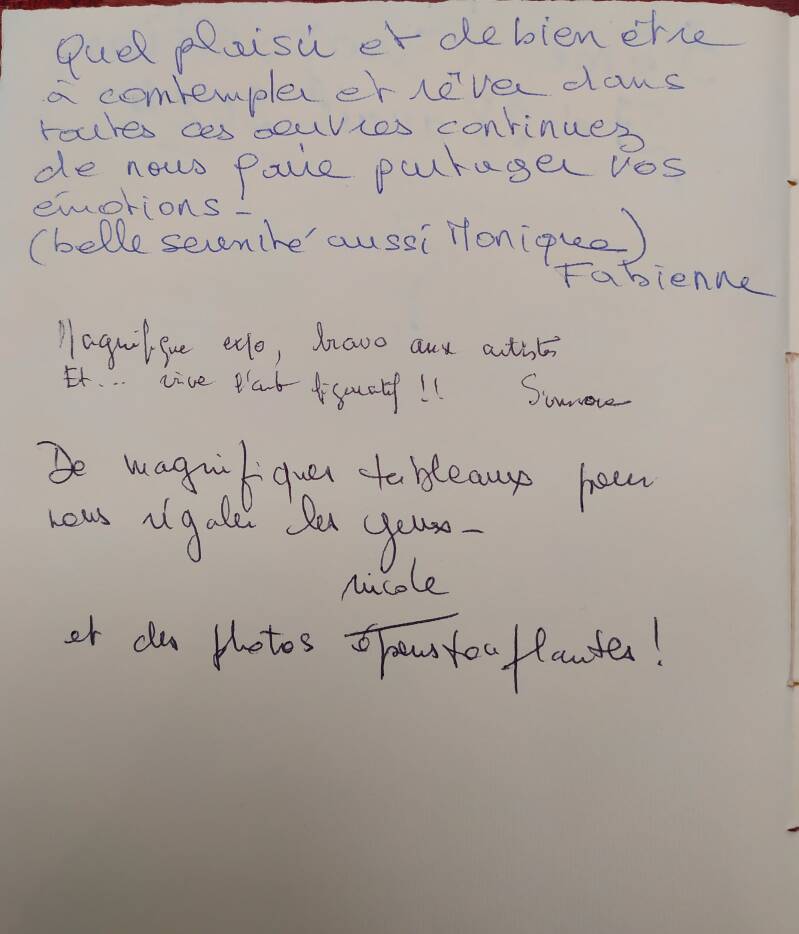 Quel plaisir et de bien être
à contempler et rêver dans
toutes ces œuvres continuez
de nous faire partager vos
émotions -
(belle serenité aussi Monique)
Fabienne
Magnifique expo, bravo aux artistes
Et... vive l'art figuratif !!
De magnifiques tableaux pour
nous régaler les yeux -
nicole
et des photos époustouflantes !